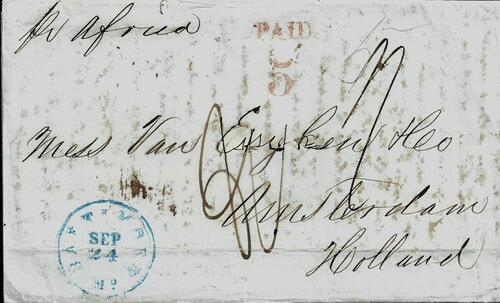 pr Africa
PAID
5
Mess Van Eeghen & Co
Amsterdam
Holland
BALTIMORE
SEP
24
Md